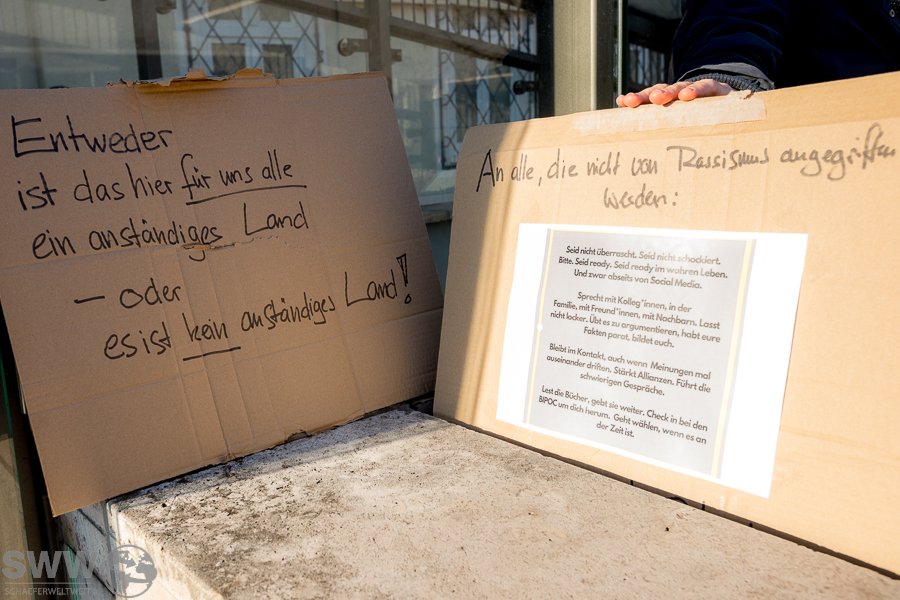 Entweder
ist das hier für uns alle
ein anständiges Land
– oder
es ist kein anständiges Land!
An alle, die nicht von Rassismus angegriffen
werden:
Seid nicht überrascht. Seid nicht schockiert.
Bitte. Seid ready. Seid ready im wahren Leben.
Und zwar abseits von Social Media.
Sprecht mit Kolleg*innen, in der
Familie, mit Freund*innen, mit Nachbarn. Lasst
nicht locker. Übt es zu argumentieren, habt eure
Fakten parat, bildet euch.
Bleibt im Kontakt, auch wenn Meinungen mal
auseinander driften. Stärkt Allianzen. Führt die
schwierigen Gespräche.
Lest die Bücher, gebt sie weiter. Check in bei den
BIPOC um dich herum. Geht wählen, wenn es an
der Zeit ist.
SWW
SCHAEFERWELTWEIT